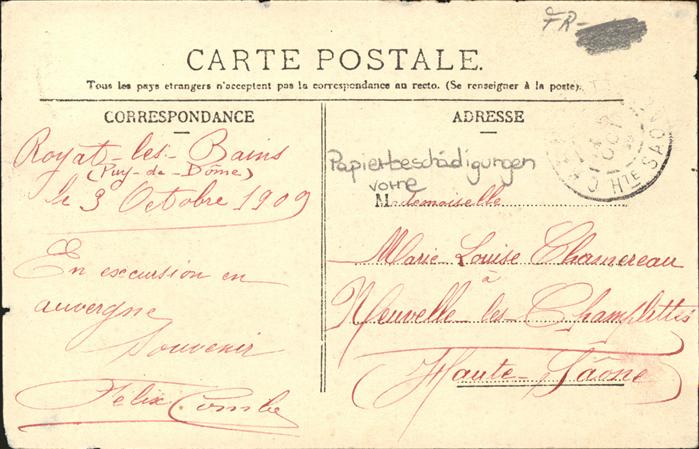 FR-
CARTE POSTALE.
Tous les pays etrangers n'acceptent pas la correspondance au recto. (Se renseigner à la poste).
CORRESPONDANCE
Royat-les-Bains
(Puy-de-Dôme)
le 3 Octobre 1909
En excursion en
auvergne
Souvenir
Felix Combe
ADRESSE
Papierbeschädigungen
vorne
Mademoiselle
Marie Louise Chamereau
à
Neuvelle-les-Champlittes
Haute-Saône
OCT
HTE SAONE